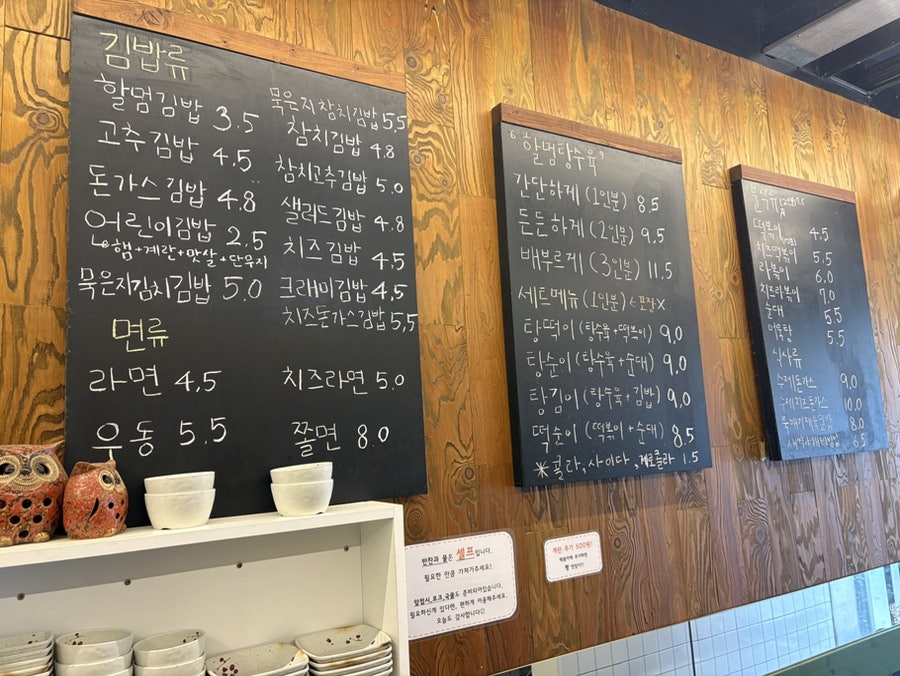 김밥류
할멈김밥 3.5
고추김밥 4.5
돈가스김밥 4.8
어린이김밥 2.5
햄+계란+맛살+단무지
묵은지김치김밥 5.0
묵은지참치김밥 5,5
참치김밥 4.8
참치고추김밥 5.0
샐러드김밥 4.8
치즈김밥 4,5
크래미김밥 4,5
치즈돈가스김밥 5,5
면류
라면 4,5
우동 5.5
치즈라면 5.0
쫄면 8.0
"할멈탕수육"
간단하게 (1인분) 8.5
든든하게 (2인분) 9.5
배부르게 (3인분) 11.5
세트메뉴 (1인분) 포장X
탕떡이 (탕수육+떡볶이) 9,0
탕순이 (탕수육+순대) 9,0
탕김이 (탕수육+김밥) 9,0
떡순이 (떡볶이+순대) 8.5
※콜라, 사이다, 제로콜라 1.5
분식류
떡볶이 4.5
치즈떡볶이 5.5
라볶이 6.0
치즈라볶이 7.0
순대 5.5
어묵탕 5.5
식사류
수제돈가스 9.0
수제치즈돈가스 10.0
8.0
6.5
반찬과 물은 셀프입니다.
필요한 만큼 가져가주세요!
앞접시,포크,국물도 준비되어있습니다.
필요하신게 있다면, 편하게 이용해주세요.
오늘도 감사합니다☺
계란 추가 500원!